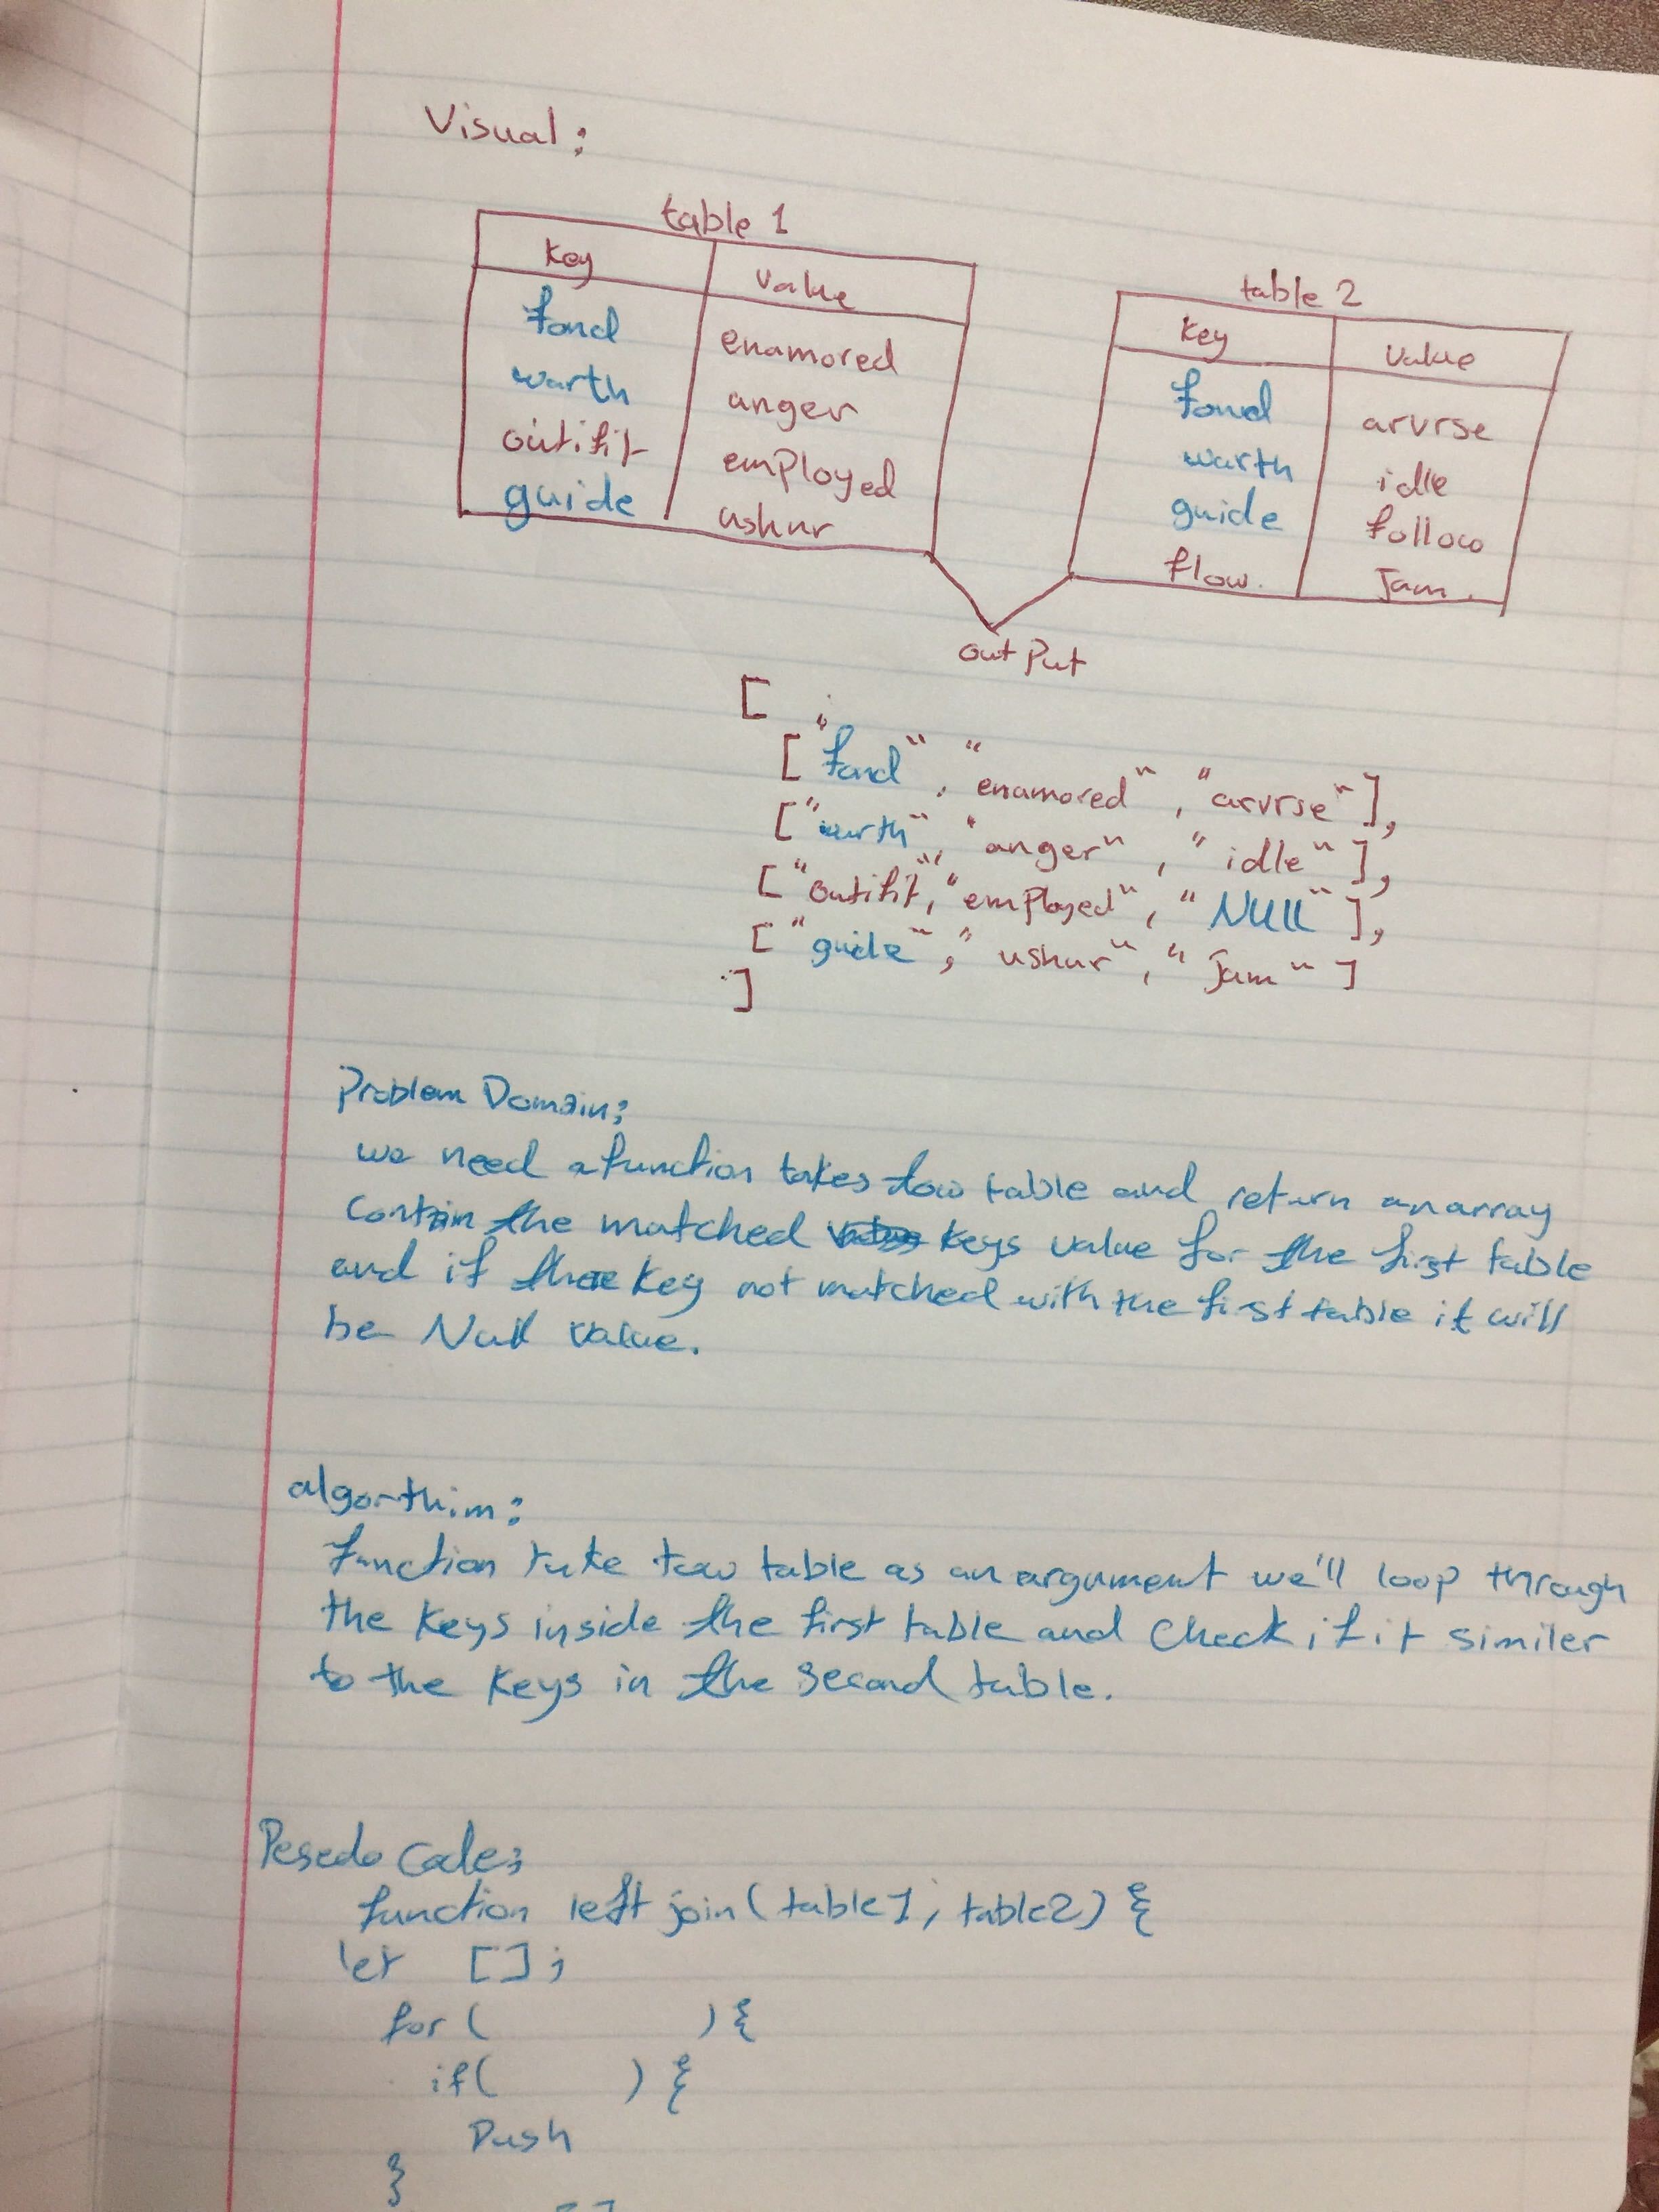 Visual:
table 1
Key Value
fond enamored
warth anger
outifit employed
guide ushur
table 2
Key Value
fond arvrse
warth idle
guide follow
flow. Jam.
outPut
[
["fond", "enamored", "arvrse"],
["warth", "anger", "idle"],
["outifit", "emPloyed", "NUll"],
["guide", "ushur", "Jam"]
]
Problem Domain:
we need a function takes tow table and return an array
Contain the matched keys value for the first table
and if the key not matched with the first table it will
be Null value.
algorthim:
function take tow table as an argument we'll loop through
the keys inside the first table and check if it similer
to the keys in the second table.
Pesedo Code:
function left join(table1, table2) {
let [];
for ( ) {
if( ) {
Push
}